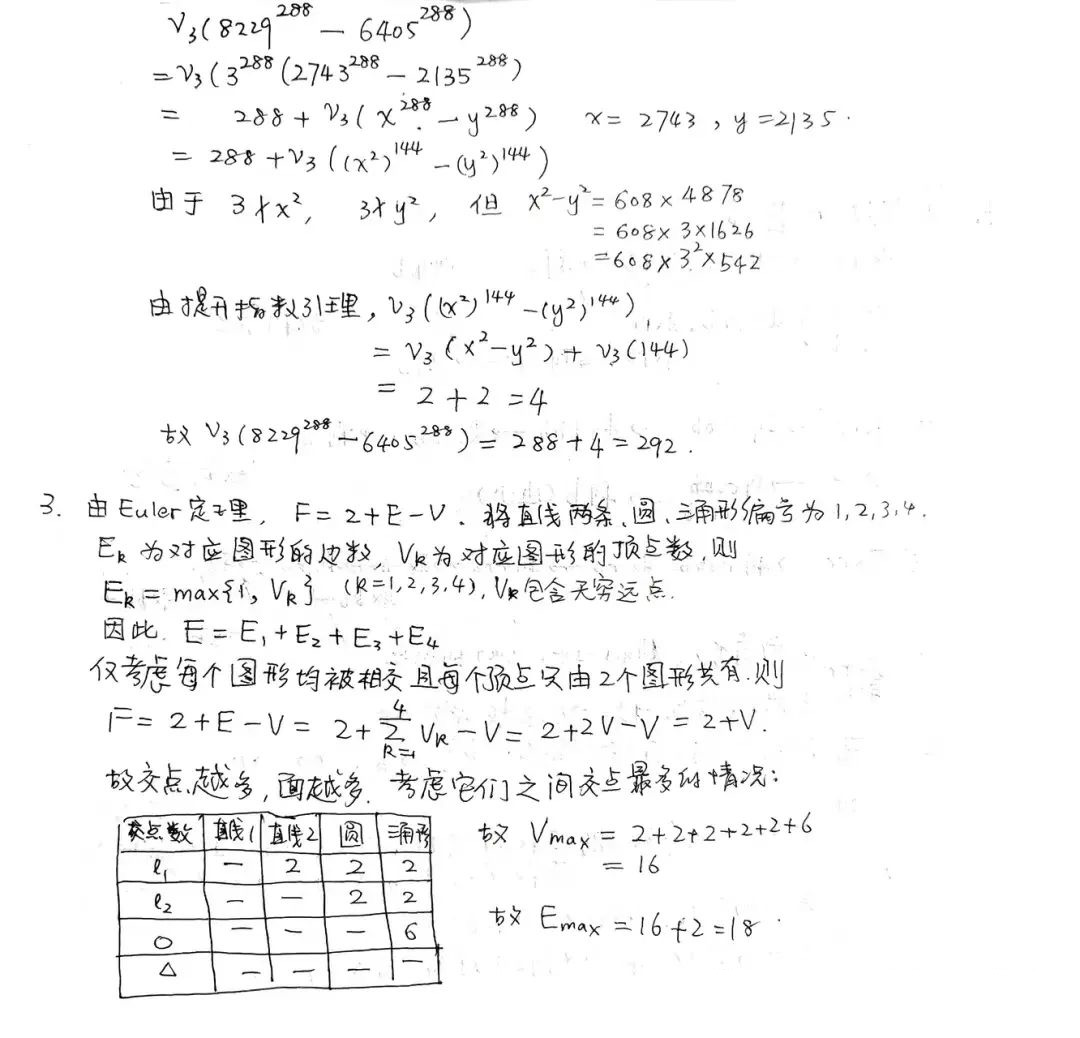 ν₃(8229²⁸⁸ − 6405²⁸⁸)
= ν₃(3²⁸⁸(2743²⁸⁸ − 2135²⁸⁸)
= 288 + ν₃(x²⁸⁸ − y²⁸⁸) x = 2743, y = 2135.
= 288 + ν₃((x²)¹⁴⁴ − (y²)¹⁴⁴)
由于 3∤x², 3∤y², 但 x²−y² = 608 × 4878
= 608 × 3 × 1626
= 608 × 3² × 542
由提升指数引理, ν₃((x²)¹⁴⁴ − (y²)¹⁴⁴)
= ν₃(x²−y²) + ν₃(144)
= 2 + 2 = 4
故 ν₃(8229²⁸⁸ − 6405²⁸⁸) = 288 + 4 = 292.
3. 由Euler定理, F = 2+E−V. 将直线两条、圆、三角形编号为1,2,3,4.
E_k 为对应图形的边数, V_k 为对应图形的顶点数, 则
E_k = max{1, V_k} (k=1,2,3,4), V_k包含无穷远点.
因此 E = E₁+E₂+E₃+E₄
仅考虑每个图形均被相交且每个顶点只由2个图形共有, 则
F = 2+E−V = 2+∑_{k=1}^{4} V_k − V = 2+2V−V = 2+V.
故交点越多, 面越多. 考虑它们之间交点最多的情况:
交点数 直线1 直线2 圆 三角形
l₁ — 2 2 2
l₂ — — 2 2
○ — — — 6
△ — — — —
故 Vmax = 2+2+2+2+2+6
= 16
故 Emax = 16+2 = 18.